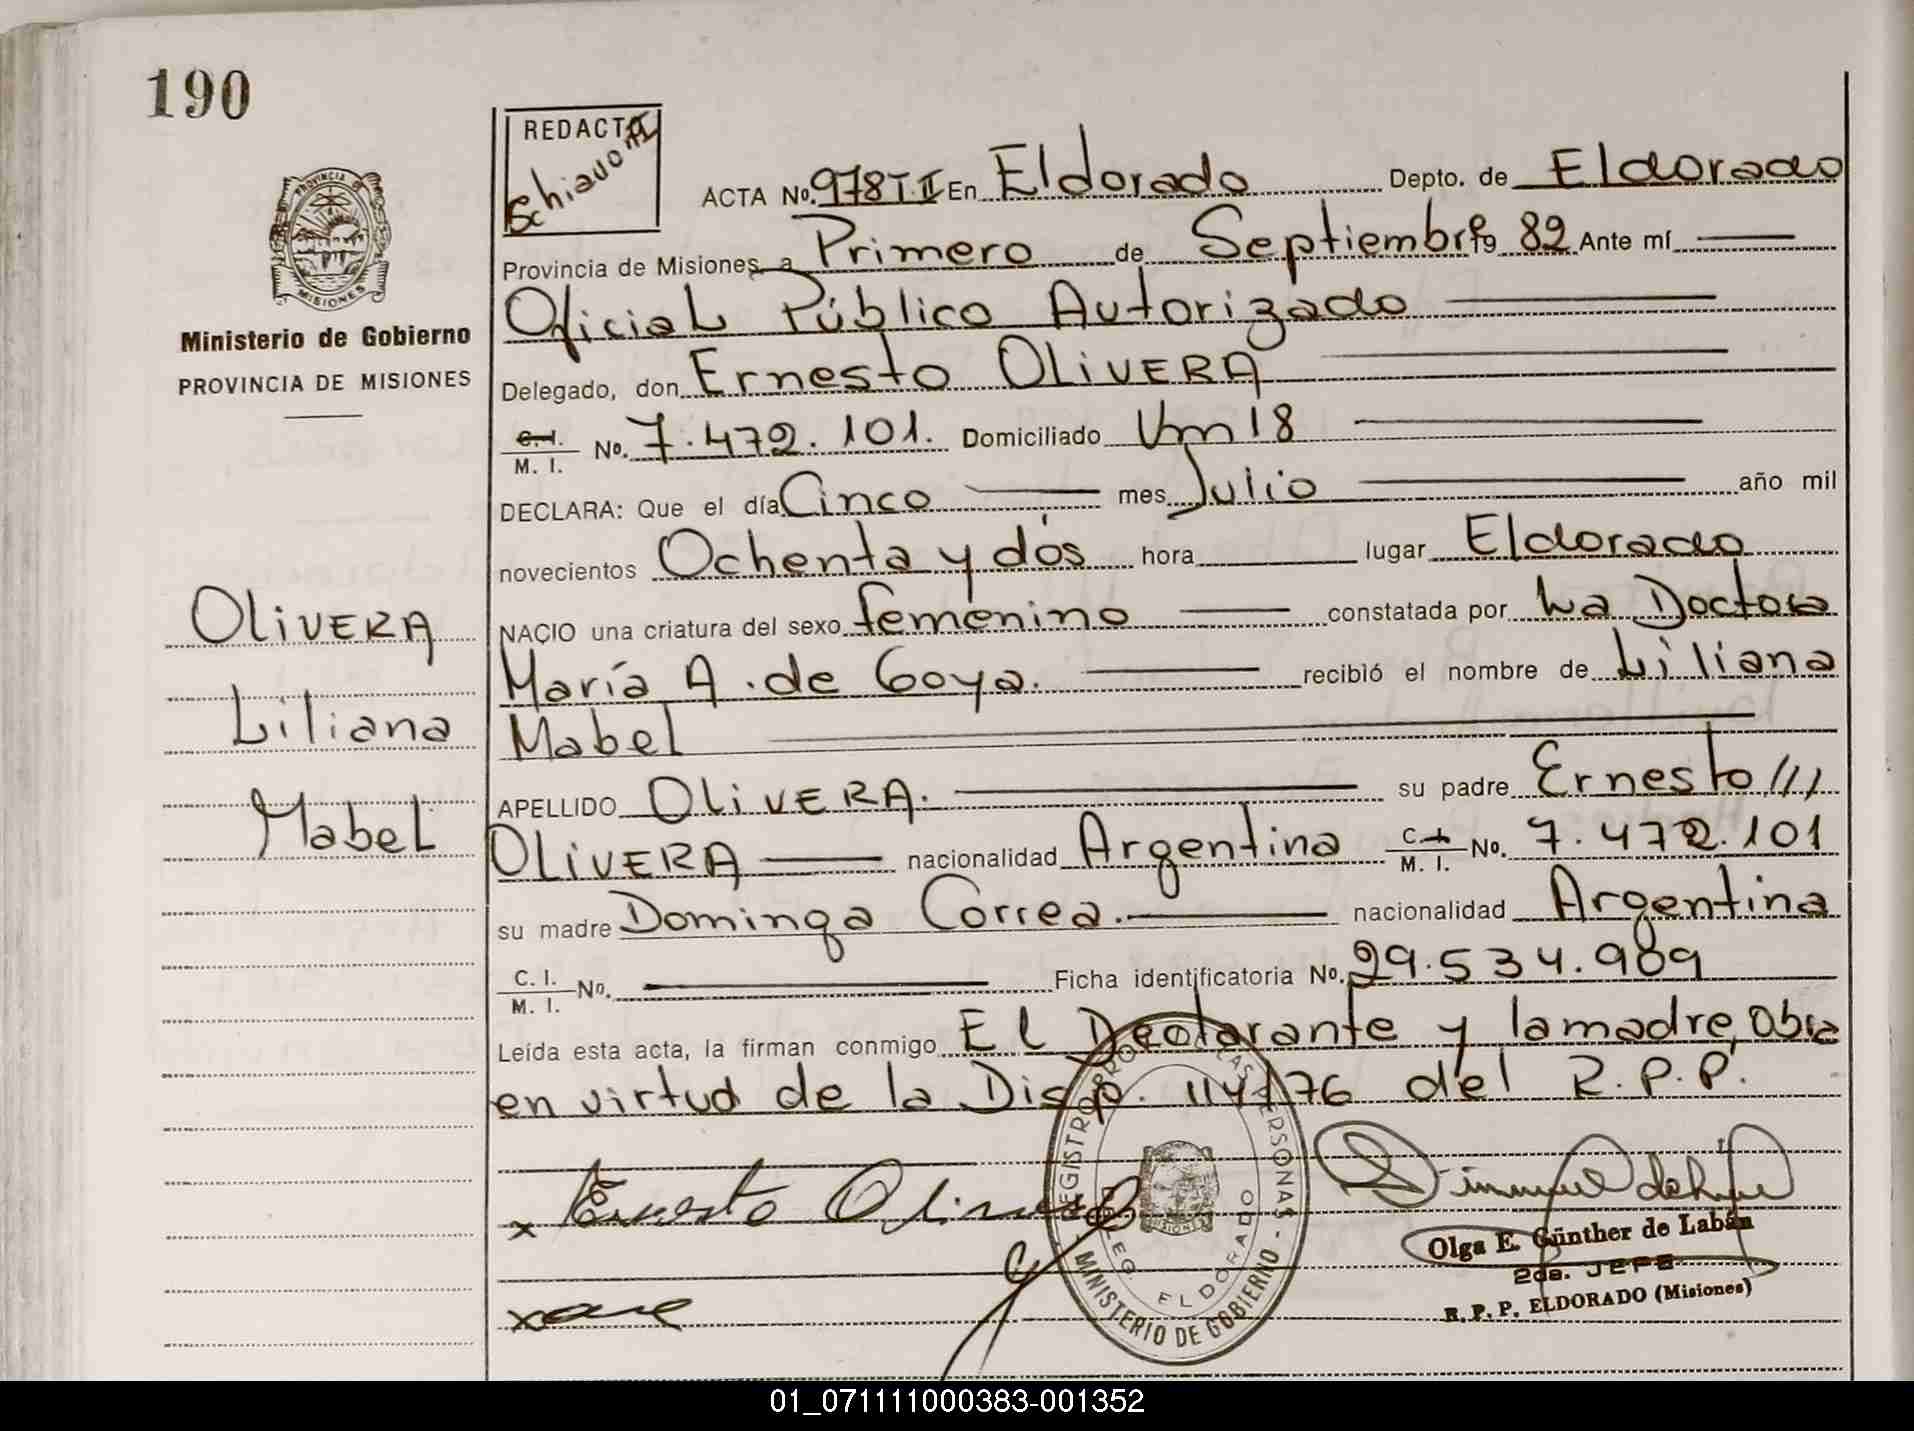 190
REDACTO
Schiavoni
PROVINCIA DE
MISIONES
Ministerio de Gobierno
PROVINCIA DE MISIONES
ACTA No. 978 T.II En Eldorado Depto. de Eldorado
Provincia de Misiones, a Primero de Septiembre 19 82 Ante mí
Oficial Público Autorizado
Delegado, don Ernesto OLIVERA
C.I. / M. I. No. 7.472.101. Domiciliado Km 18
DECLARA: Que el día Cinco mes Julio año mil
novecientos Ochenta y dós hora lugar Eldorado
NACIO una criatura del sexo femenino constatada por La Doctora
María A. de Goya. recibió el nombre de Liliana
Mabel
APELLIDO OLIVERA. su padre Ernesto ///
OLIVERA nacionalidad Argentina C.I. / M. I. No. 7.472.101
su madre Dominga Correa. nacionalidad Argentina
C. I. / M. I. No. Ficha identificatoria No. 29.534.989
Leída esta acta, la firman conmigo El Declarante y la madre, Obra
en virtud de la Disp. 114/76 del R.P.P.
OLIVERA
Liliana
Mabel
x Ernesto Olivera
REGISTRO PROV. LAS PERSONAS
DELEG. ELDORADO
MINISTERIO DE GOBIERNO
Olga E. Günther de Labán
2da. JEFE
R. P. P. ELDORADO (Misiones)
01_071111000383-001352